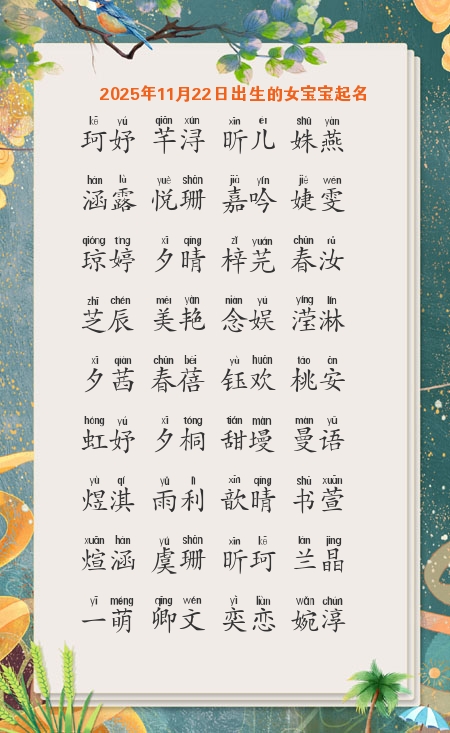 2025年11月22日出生的女宝宝起名
kē yú qiān xún xīn ér shū yàn
珂妤 芊浔 昕儿 姝燕
hán lù yuè shān jiā yín jié wén
涵露 悦珊 嘉吟 婕雯
qióng tíng xī qíng zǐ yuán chūn rǔ
琼婷 夕晴 梓芫 春汝
zhī chén měi yàn niàn yú yíng lín
芝辰 美艳 念娱 滢淋
xī qiàn chūn bèi yù huān táo ān
夕茜 春蓓 钰欢 桃安
hóng yú xī tóng tián màn màn yǔ
虹妤 夕桐 甜墁 曼语
yù qí yǔ lì xīn qíng shū xuān
煜淇 雨利 歆晴 书萱
xuān hán yú shān xīn kē lán jīng
煊涵 虞珊 昕珂 兰晶
yī méng qīng wén yì liàn wǎn chún
一萌 卿文 奕恋 婉淳